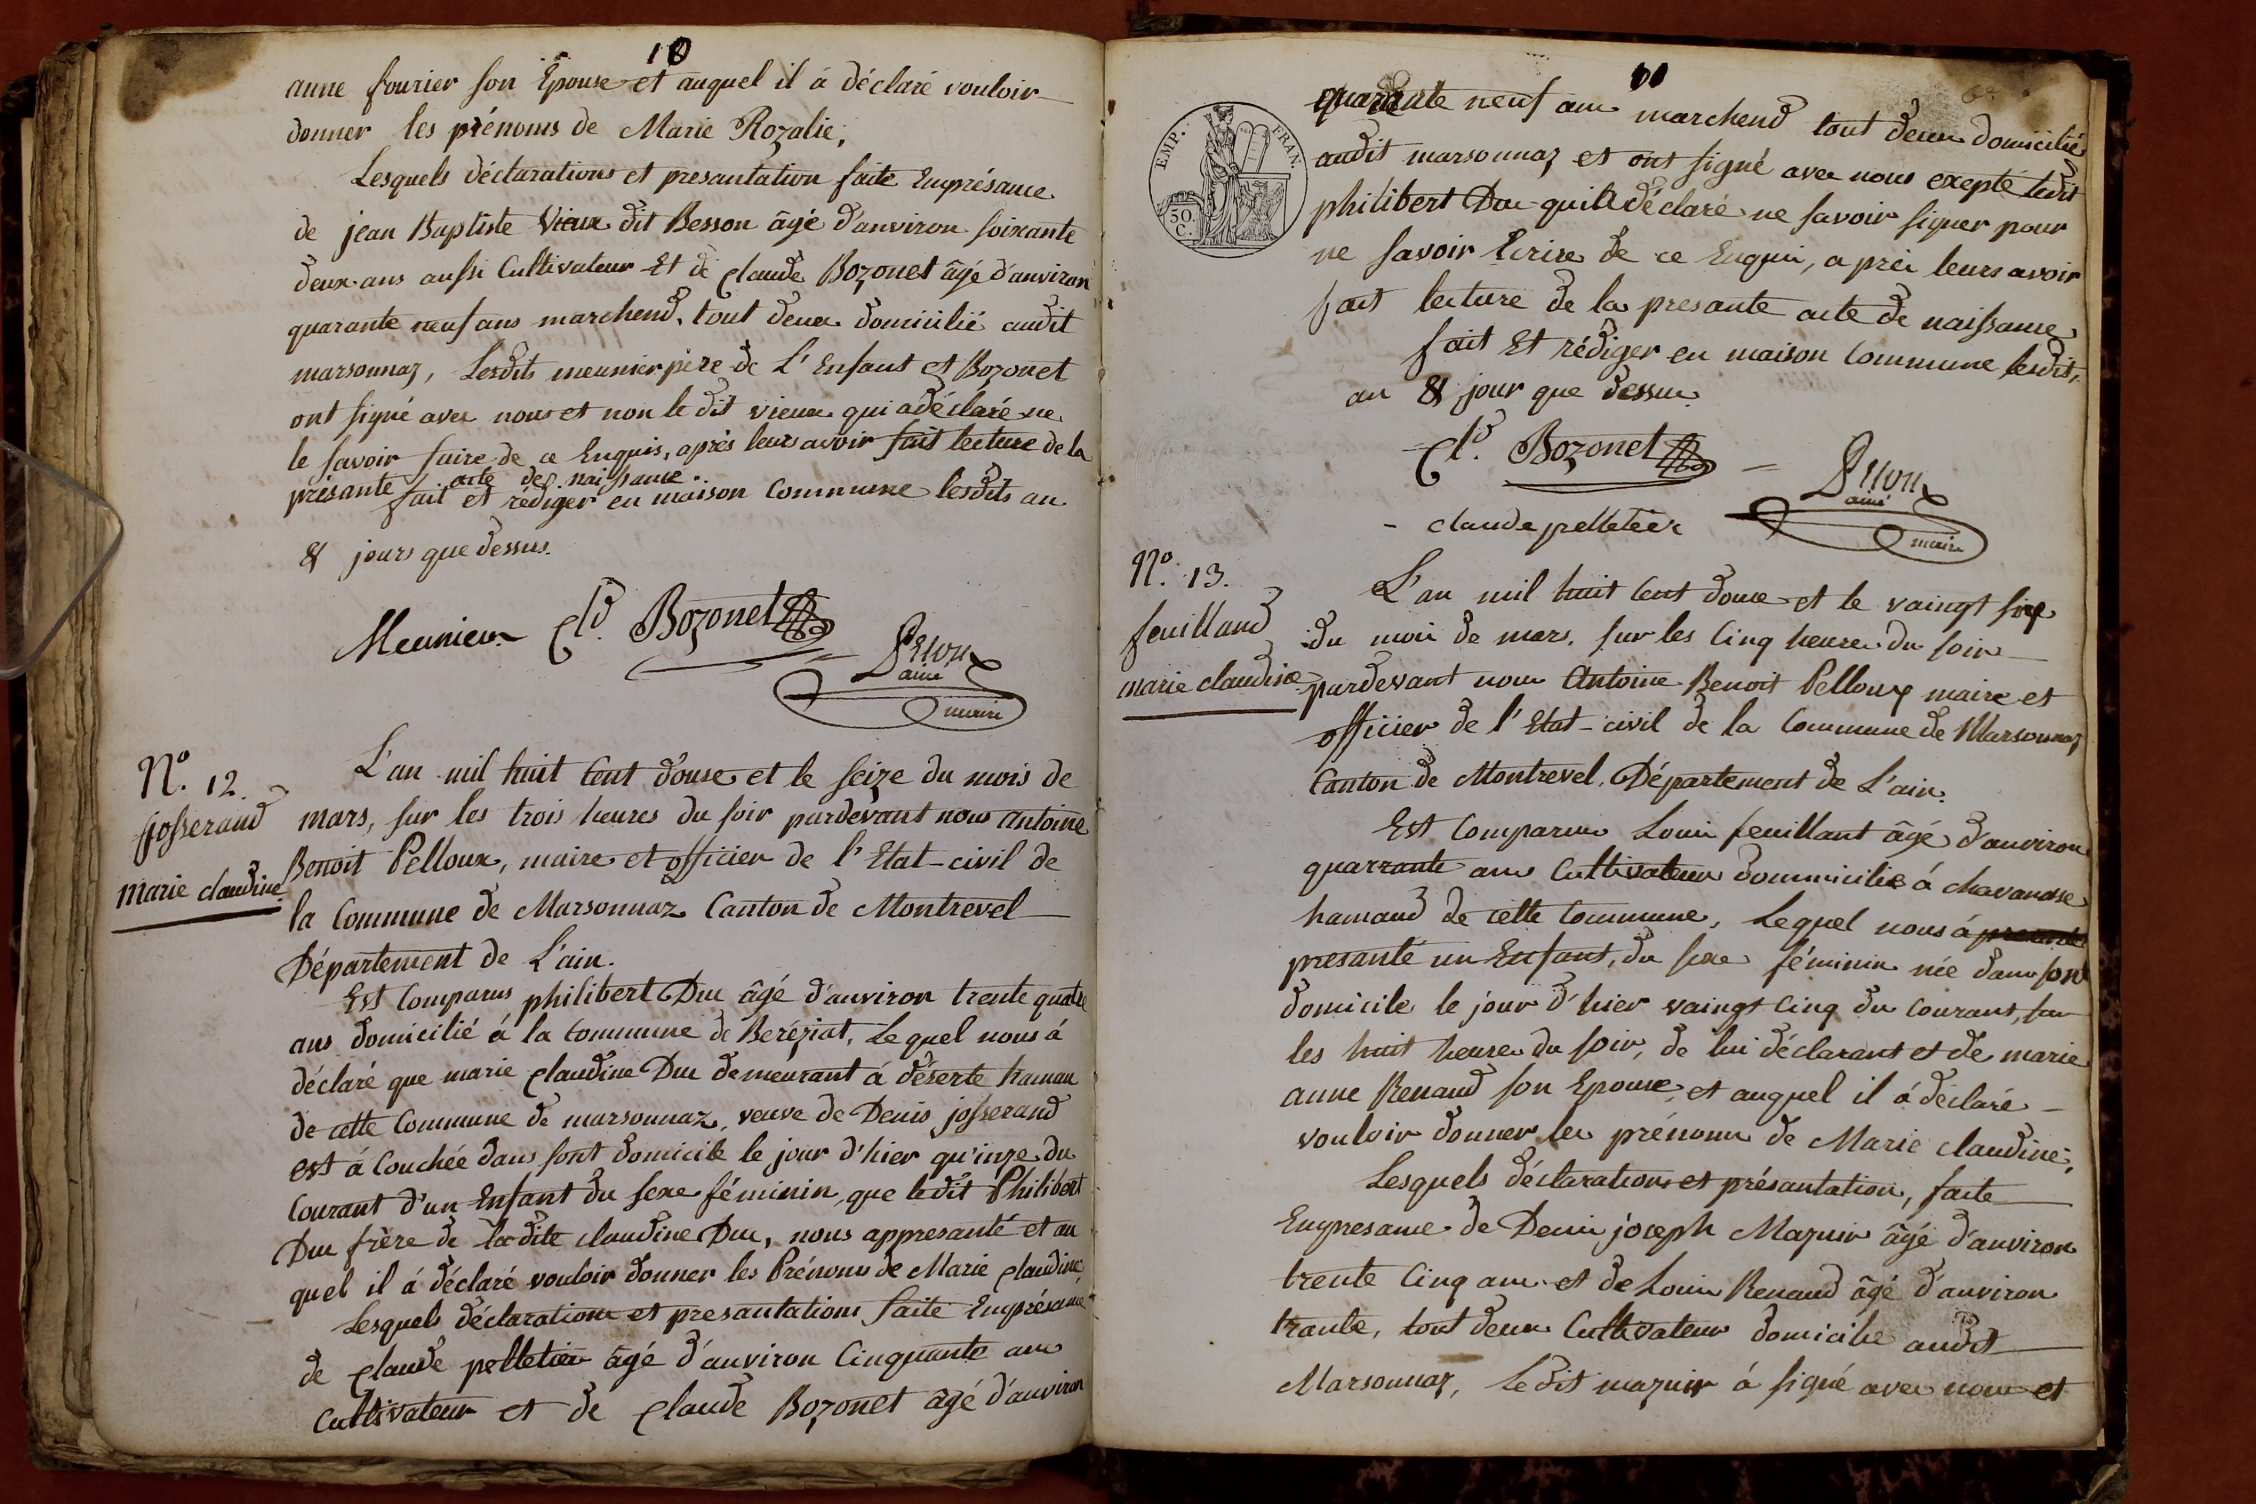 10
anne fourier son Epouse et auquel il á déclaré vouloir
donner les prénoms de Marie Rozalie,
Lesquels déclarations et presantation faite Enprésance
de jean Baptiste Vieux dit Besson âgé d'anviron soixante
deux ans aussi Cultivateur Et de Claude Bozonet âgé d'anviron
quarante neuf ans marchend, tout deux domicilié audit
marsonnaz, Lesdits meunier père de L'Enfant et Bozonet
ont signé avec nous et non le dit vieux qui a déclaré ne
le savoir faire de ce Enquis, après leurs avoir fait lecture de la
présante acte de naissance.
fait et rédiger en maison Commune lesdits an
& jours que dessus.
Meunier Cld. Bozonet
Pelloux
ainé
maire
N.o 12.
Josserand
marie claudine
L'an mil huit Cent douse et le seize du mois de
mars, sur les trois heures du soir pardevant nous antoine
Benoit Pelloux, maire et officier de l'Etat-civil de
la Commune de Marsonnaz Canton de Montrevel
Département de L'ain.
Est Comparus philibert Duc âgé d'anviron trente quatre
ans domicilié á la Commune de Beréziat, Le quel nous á
déclaré que marie Claudine Duc demeurant á déserte hamau
de cette Commune de marsonnaz, veuve de Denis josserand
est á Couchée dans sont domicile le jour d'hier qu'inze du
Courant d'un Enfant du sexe féminin, que ledit Philibert
Duc frère de ladite claudine Duc, nous appresanté et au
quel il á déclaré vouloir donner les Prénoms de Marie Claudine,
Lesquels déclarations et presantations faite Enprésance
de Claude pelletier âgé d'anviron Cinquante ans
Cultivateur et de Claude Bozonet âgé d'anviron
11
EMP. FRAN.
50.
C.
quarante neuf ans marchend tout deux domicilié
audit marsonnaz et ont signé avec nous exepté ledit
philibert Duc qui a déclaré ne savoir signer pour
ne savoir Ecrire de ce Enquis, a prèi leurs avoir
fait lecture de la presante acte de naissance
fait Et rédiger en maison Commune lesdits,
an & jour que dessus.
Cld. Bozonet
Pelloux
ainé
maire
claude pelletier
N.o 13.
feuilland
marie claudine
L'an mil huit Cent douse et le vaingt six
du mois de mars, sur les Cinq heures du soir
pardevant nous Antoine Benoit Pelloux maire et
officier de l'Etat-civil de la Commune de Marsonnaz
Canton de Montrevel, Département de L'ain.
Est Comparus Louis feuillant âgé d'anviron
quarrante ans Cultivateur dommicilié á chavanose
hamaud de cette Commune, Lequel nous á
presanté un Enfant, du sexe féminin née dans son
domicile le jour d'hier vaingt Cinq du Courant, sur
les huit heures du soir, de lui déclarant et de marie
anne Renaud son Epouse, et auquel il á déclaré
vouloir donner les prénoms de Marie Claudine,
Lesquels déclarations et présantation, faite
Enpresance de Denis joseph Mazuir âgé d'anviron
trente Cinq ans et de Louis Renaud âgé d'anviron
trante, tout deux Cultivateur domicilie audit
Marsonnaz, Le dit mazuir á signé avec nous et